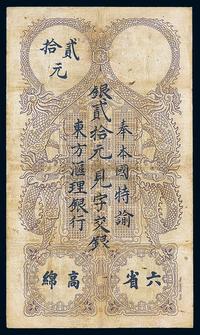 貳
拾
元
奉本國特諭
銀貳拾元見字交銀
東方滙理銀行
六省
高綿